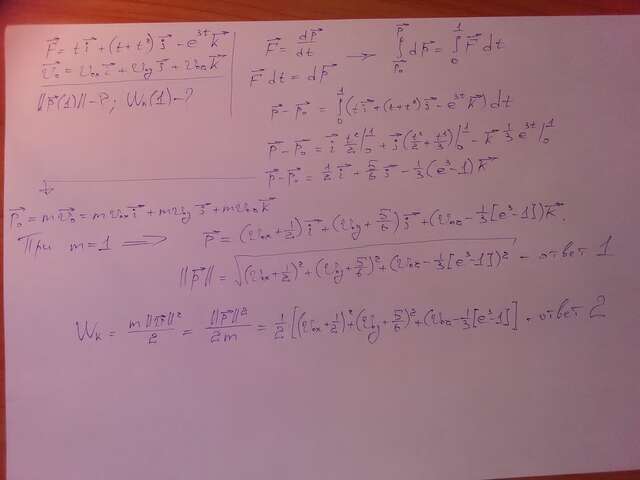 F⃗ = t i⃗ + (t + t²) j⃗ - e³ᵗ k⃗
v⃗₀ = v₀ₓ i⃗ + v₀y j⃗ + v₀z k⃗
||p⃗(1)|| - ?; Wₖ(1) - ?
F⃗ = dp⃗/dt → ∫_{p⃗₀}^{p⃗} dp⃗ = ∫_0^1 F⃗ dt
F⃗ dt = dp⃗
p⃗ - p⃗₀ = ∫_0^1 (t i⃗ + (t + t²) j⃗ - e³ᵗ k⃗) dt
p⃗ - p⃗₀ = i⃗ t²/2 |_0^1 + j⃗ (t²/2 + t³/3) |_0^1 - k⃗ 1/3 e³ᵗ |_0^1
p⃗ - p⃗₀ = 1/2 i⃗ + 5/6 j⃗ - 1/3 (e³ - 1) k⃗
p⃗₀ = m v⃗₀ = m v₀ₓ i⃗ + m v₀y j⃗ + m v₀z k⃗
При m = 1 ⟹ p⃗ = (v₀ₓ + 1/2) i⃗ + (v₀y + 5/6) j⃗ + (v₀z - 1/3 [e³ - 1]) k⃗.
||p⃗|| = √((v₀ₓ + 1/2)² + (v₀y + 5/6)² + (v₀z - 1/3 [e³ - 1])²) - ответ 1
Wₖ = m ||v⃗||²/2 = ||p⃗||²/2m = 1/2 [(v₀ₓ + 1/2)² + (v₀y + 5/6)² + (v₀z - 1/3 [e³ - 1]] - ответ 2